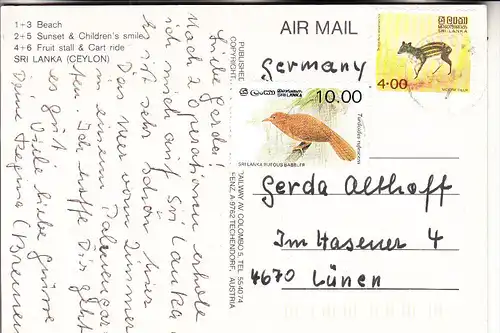 1+3 Beach
2+5 Sunset & Children's smile
4+6 Fruit stall & Cart ride
SRI LANKA (CEYLON)
Liebe Gerda!
Nach 2 Operationen erhole
ich mich auf Sri Lanka
Es ist sehr schön hier
Das Meer vorm Zimmer
einem Palmen
Ich hoffe Dir geht
es gut.
Viele liebe Grüsse
Deine Regina (Bremen
PUBLISHE
COPYRIGHT
AILWAY AV. COLOMBO 5, TEL. 554074
ENZ, A-9762 TECHENDORF, AUSTRIA
AIR MAIL
Germany
ශ්‍රී ලංකා
SRI LANKA
10.00
Turdoides rufescens
SRI LANKA RUFOUS BABBLER
ශ්‍රී ලංකා
SRI LANKA
4.00
Gerda Althoff
Im Hasener 4
4670 Lünen